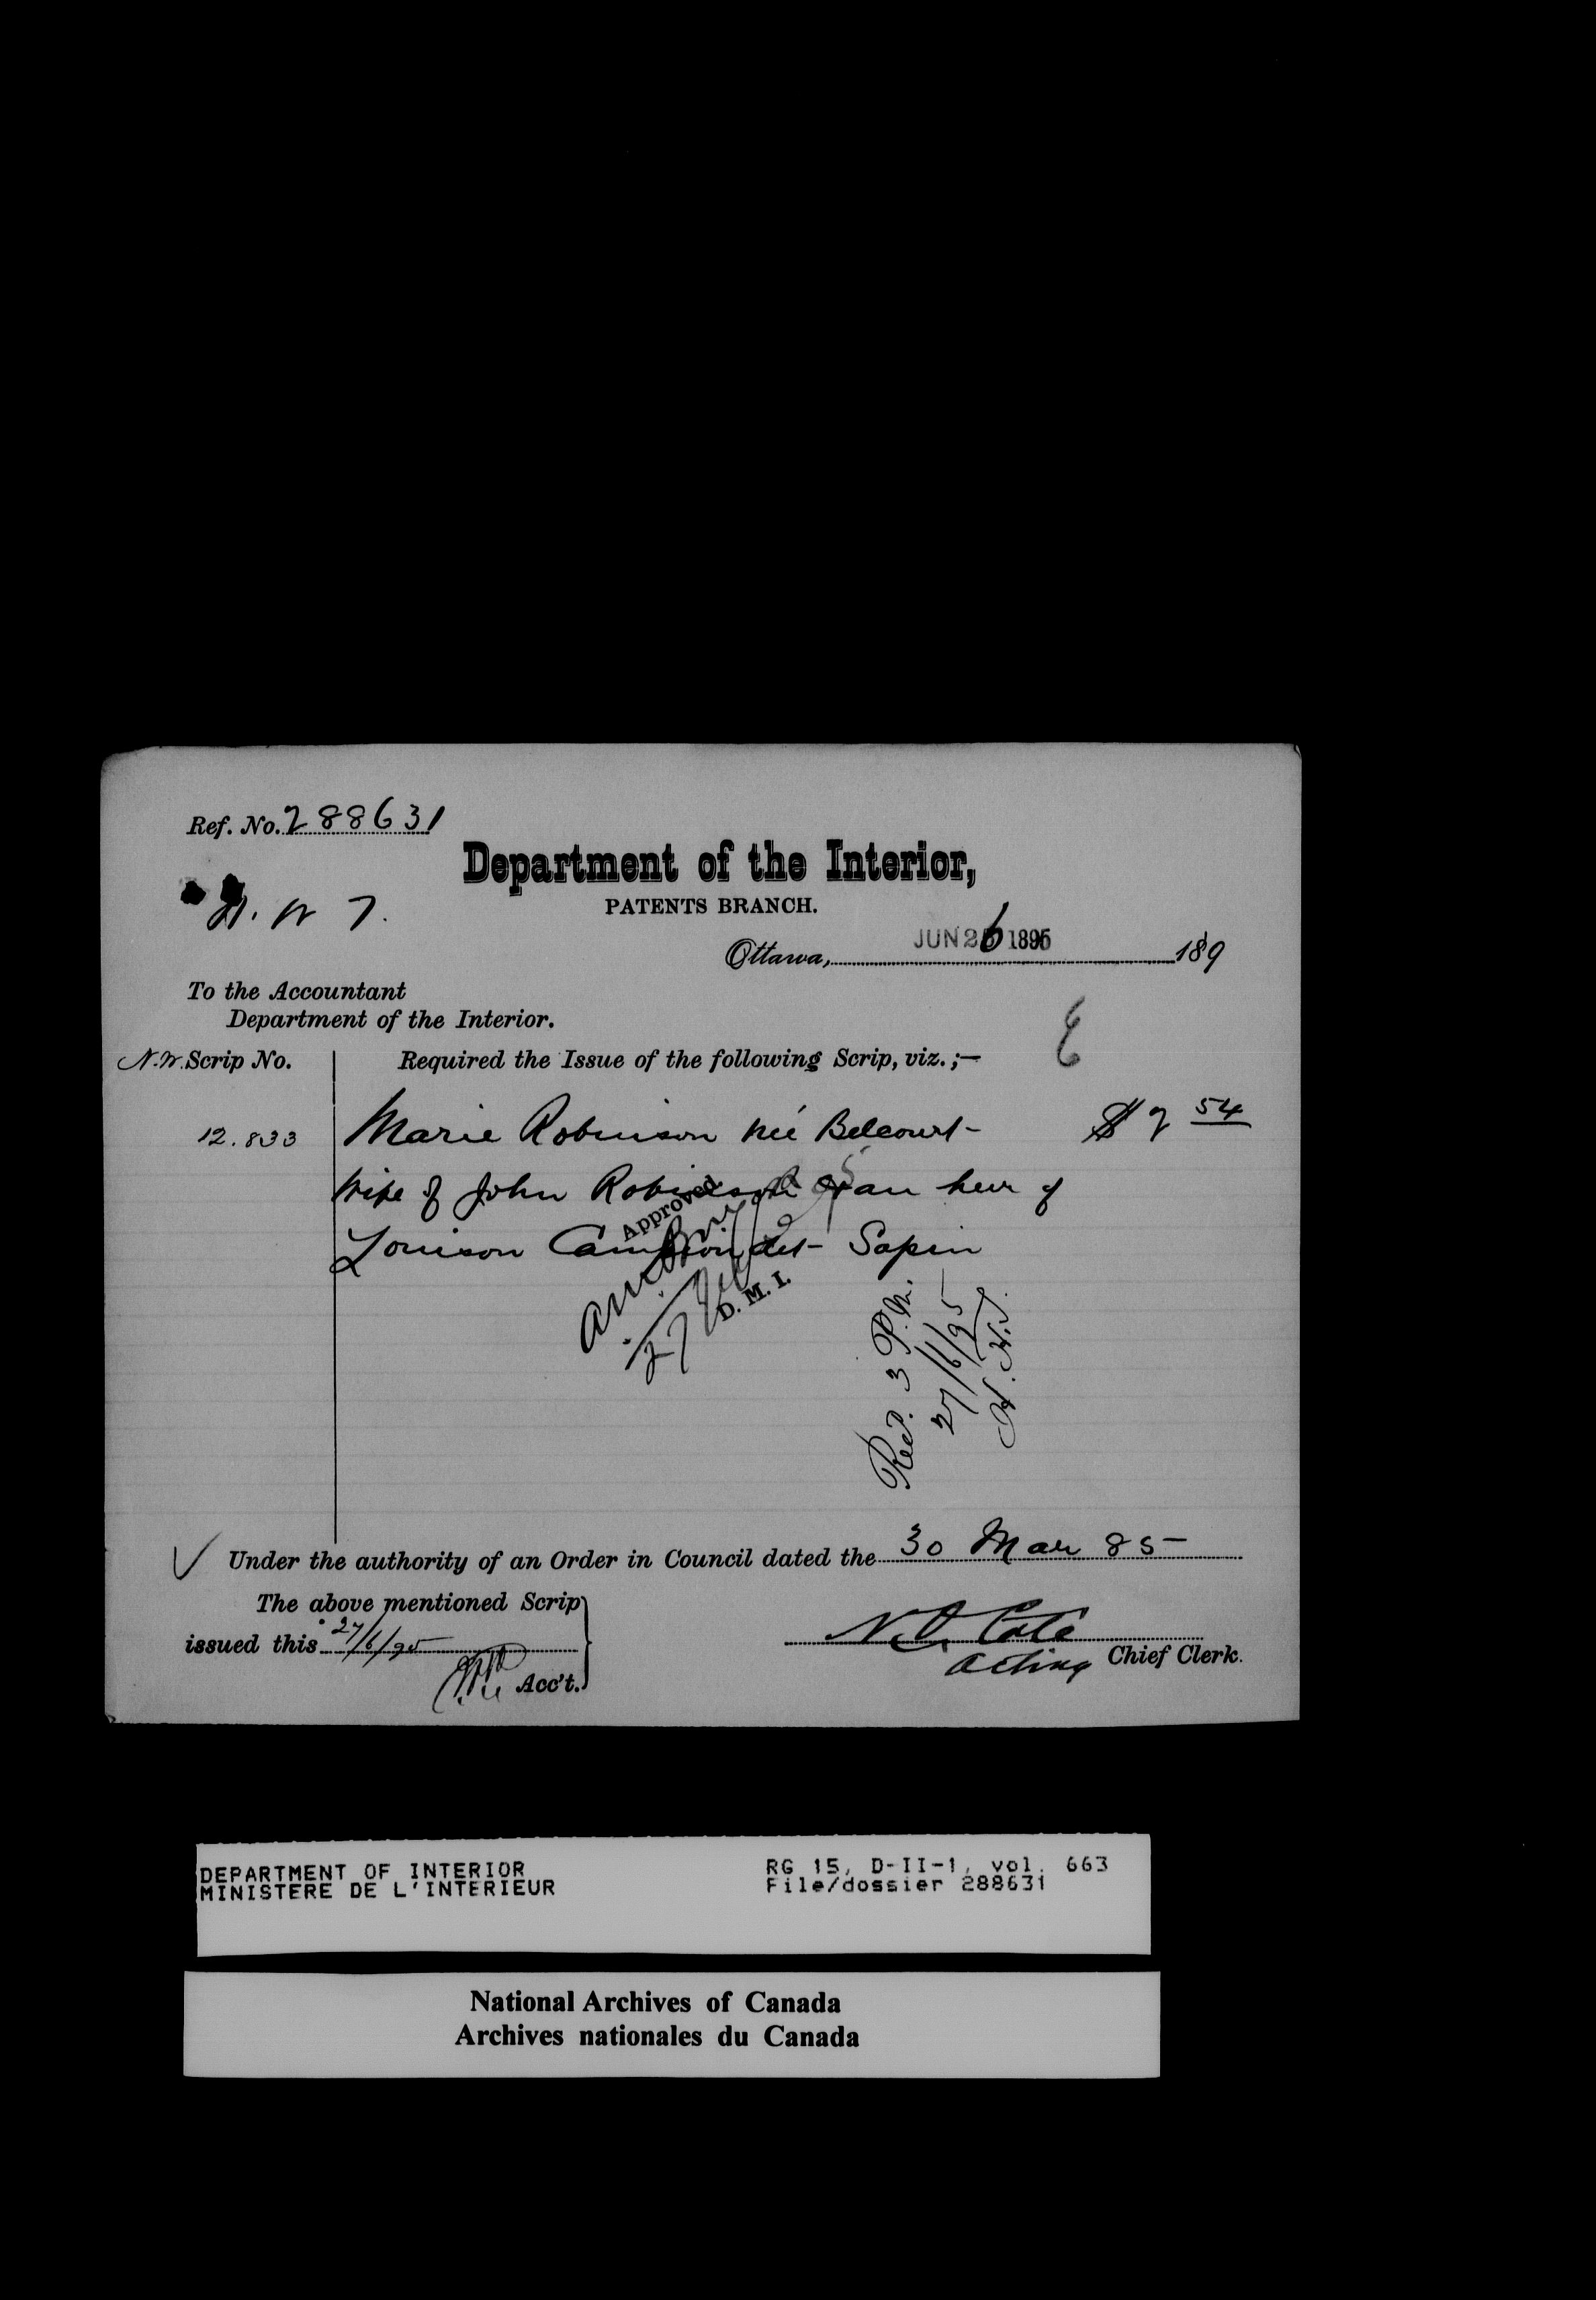 Ref. No. 288631
Department of the Interior,
PATENTS BRANCH.
N. W T.
Ottawa, JUN 26 1895 189
To the Accountant
Department of the Interior.
N.W. Scrip No. Required the Issue of the following Scrip, viz.;—
12.833 Marie Robinson neé Belcourt - $ 7 54
Wife of John Robinson & an heir of
Louison Campion dit - Sapin
Approved
27
D. M. I.
Rec'd. 3 P.M.
27/6/95
Under the authority of an Order in Council dated the 30 Mar 85
The above mentioned Scrip
issued this 27/6/95
Acc't.
N. O. Cote
acting Chief Clerk.
DEPARTMENT OF INTERIOR
MINISTERE DE L'INTERIEUR
RG 15, D-II-1, vol. 663
File/dossier 288631
National Archives of Canada
Archives nationales du Canada